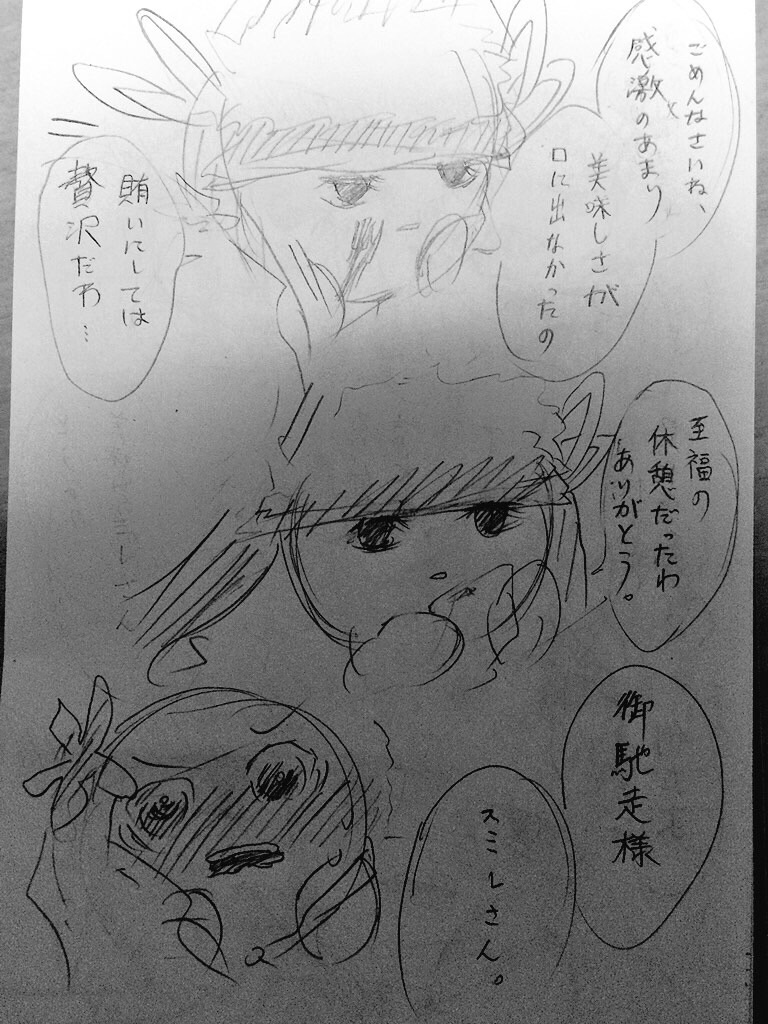 ごめんなさいね、
感激のあまり
美味しさが
口に出なかったの
賄いにしては
贅沢だわ…
至福の
休憩だったわ
ありがとう。
御馳走様
スミレさん。